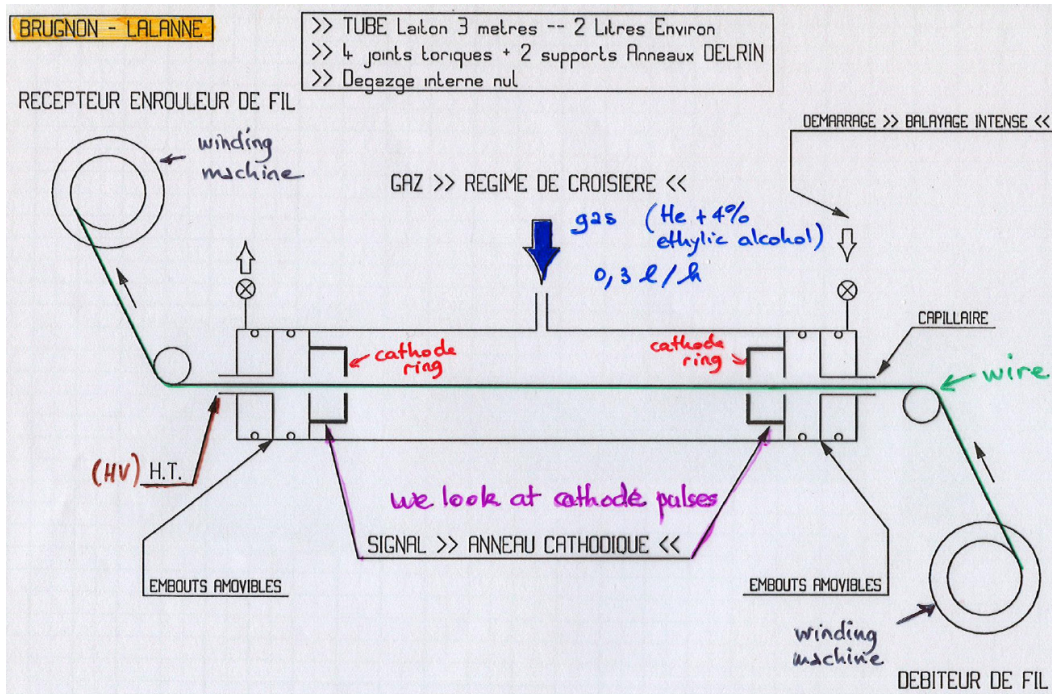 BRUGNON - LALANNE
>> TUBE Laiton 3 metres -- 2 Litres Environ
>> 4 joints toriques + 2 supports Anneaux DELRIN
>> Degazge interne nul
RECEPTEUR ENROULEUR DE FIL
winding
machine
DEMARRAGE >> BALAYAGE INTENSE <<
GAZ >> REGIME DE CROISIERE <<
gas (He + 4%
ethylic alcohol)
0,3 l/h
CAPILLAIRE
cathode
ring
cathode
ring
wire
(HV) H.T.
we look at cathode pulses
SIGNAL >> ANNEAU CATHODIQUE <<
EMBOUTS AMOVIBLES
EMBOUTS AMOVIBLES
winding
machine
DEBITEUR DE FIL